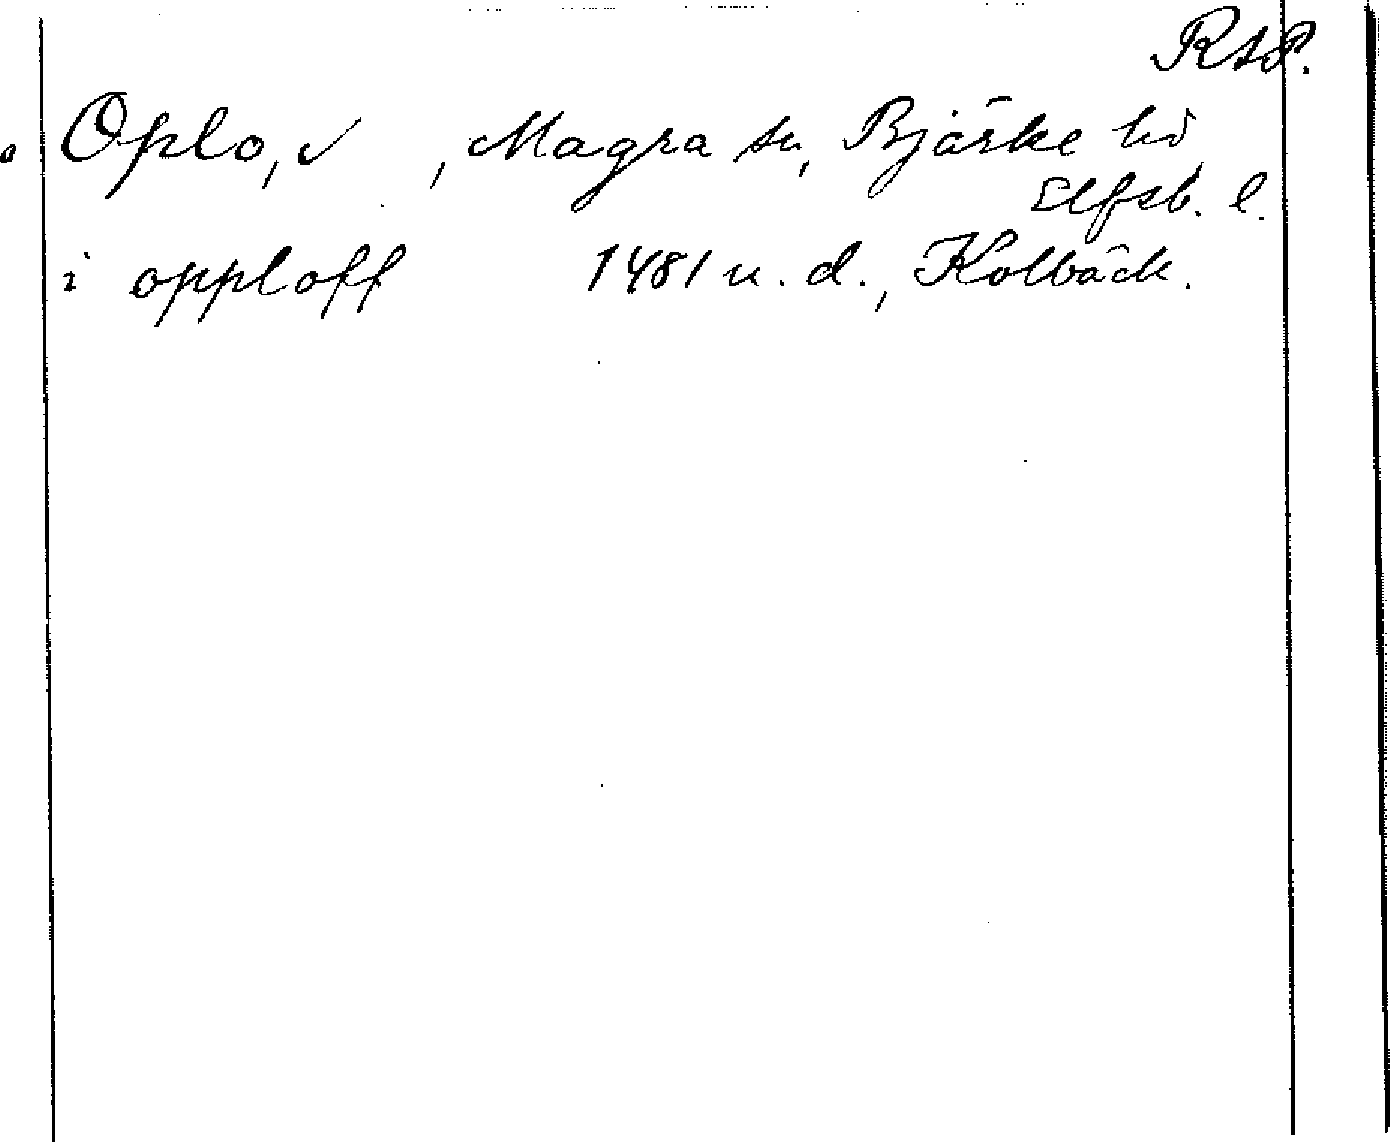 RAP.
Oplo, ✓ , Magra sn, Bjärke hd,
Elfsb. l.
i opploff 1481 u. d., Kolbäck.